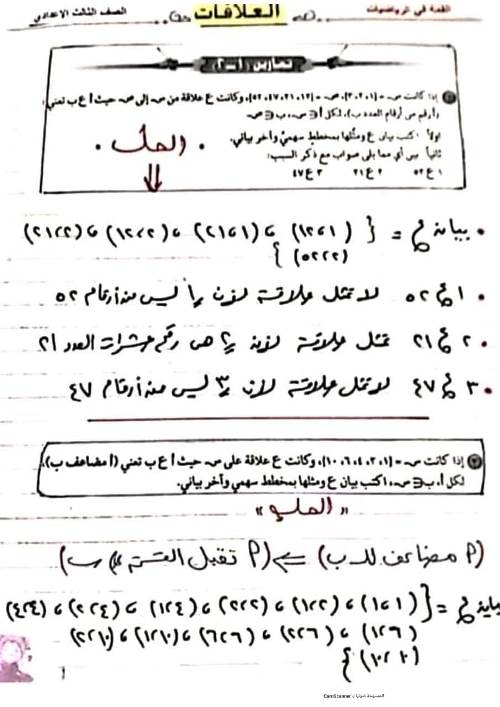 القمة في الرياضيات العلاقات الصف الثالث الاعدادي
تمارين (١-٢)
١ إذا كانت س = {١، ٢، ٣}، ص = {١٢، ٢١، ٤٧، ٥٢}، وكانت ع علاقة من س إلى ص حيث أ ع ب تعني:
(أ رقم من أرقام العدد ب)، لكل أ ∈ س، ب ∈ ص
أولاً اكتب بيان ع ومثلها بمخطط سهمي وآخر بياني.
ثانياً بين أي مما يلي صواب مع ذكر السبب:
١ ع ٥٢ ٢ ع ٢١ ٣ ع ٤٧
الحل
• بيان ع = { (١، ١٢) ، (١، ٢١) ، (٢، ١٢) ، (٢، ٢١)
(٢، ٥٢) }
• ١ ع ٥٢ لا تمثل علاقة لأن ١ ليس من أرقام ٥٢
• ٢ ع ٢١ تمثل علاقة لأن ٢ هى رقم عشرات العدد ٢١
• ٣ ع ٤٧ لا تمثل علاقة لأن ٣ ليس من أرقام ٤٧
٢ إذا كانت س = {١، ٢، ٤، ٦، ١٠}، وكانت ع علاقة على س حيث أ ع ب تعني (أ مضاعف ب)،
لكل أ، ب ∈ س، اكتب بيان ع ومثلها بمخطط سهمي وآخر بياني.
"الحل"
(أ مضاعف لـ ب) ⇐ (أ تقبل القسمة على ب)
بيان ع = { (١،١) ، (٢،١) ، (٢،٢) ، (٤،١) ، (٤،٢) ، (٤،٤)
(٦،١) ، (٦،٢) ، (٦،٦) ، (١٠،١) ، (١٠،٢)
(١٠،١٠) }
١
الممسوحة ضوئيا بـ CamScanner